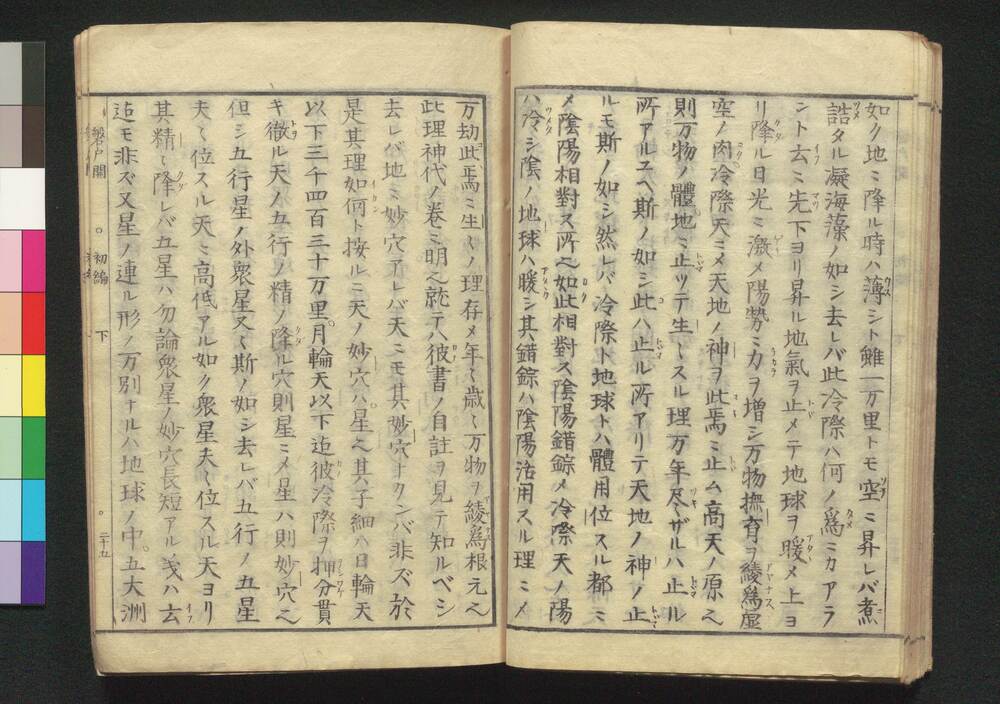 如ク地ミ降ル時ハ薄シト雖一万里トモ空ミ昇レバ煮
詰タル凝海藻ノ如シ去レバ此冷際ハ何ノ為ミカアラ
ント云ミ先下ヨリ昇ル地氣ヲ止メテ地球ヲ暖メ上ヨ
リ降ル日光ミ激メ陽勢ミカヲ増シ万物撫育ヲ綾為虚
空ノ肉冷際天ミメ天地ノ神ヲ此焉ミ止ム高天ノ原也
則万物ノ體地ミ止ツテ生〻スル理万年尽ザルハ止ル
所アルユヘ斯ノ如シ此ハ止ル所アリテ天地ノ神ノ止
ルモ斯ノ如シ然レバ冷際ト地球トハ體用位スル都ミ
メ陰陽相對ス所也如此相對ス陰陽錯綜メ冷際天ノ陽
ハ冷シ陰ノ地球ハ暖シ其錯綜ハ陰陽活用スル理ミメ
万劫此焉ミ生〻ノ理存メ年〻歳〻万物ヲ綾為根元也
此理神代ノ巻ミ明也就テハ彼書ノ自註ヲ見テ知ルベシ
去レバ地ミ妙穴アレバ天ミモ其妙穴ナクンバ非ズ於
是其理如何ト按ルミ天ノ妙穴ハ星也其子細ハ日輪天
以下三千四百三十万里月輪天以下迄彼冷際ヲ押分貫
キ徹ル天ノ五行ノ精ノ降ル穴則星ミメ星ハ則妙穴也
但シ五行星ノ外衆星又〻斯ノ如シ去レバ五行ノ五星
夫〻位スル天ミ高低アル如ク衆星夫〻位スル天ヨリ
其精〻降レバ五星ハ勿論衆星ノ妙穴長短アル〻ハ云
迄モ非ズ又星ノ連ル形ノ万別ナルハ地球ノ中五大洲
初編
下
二十五